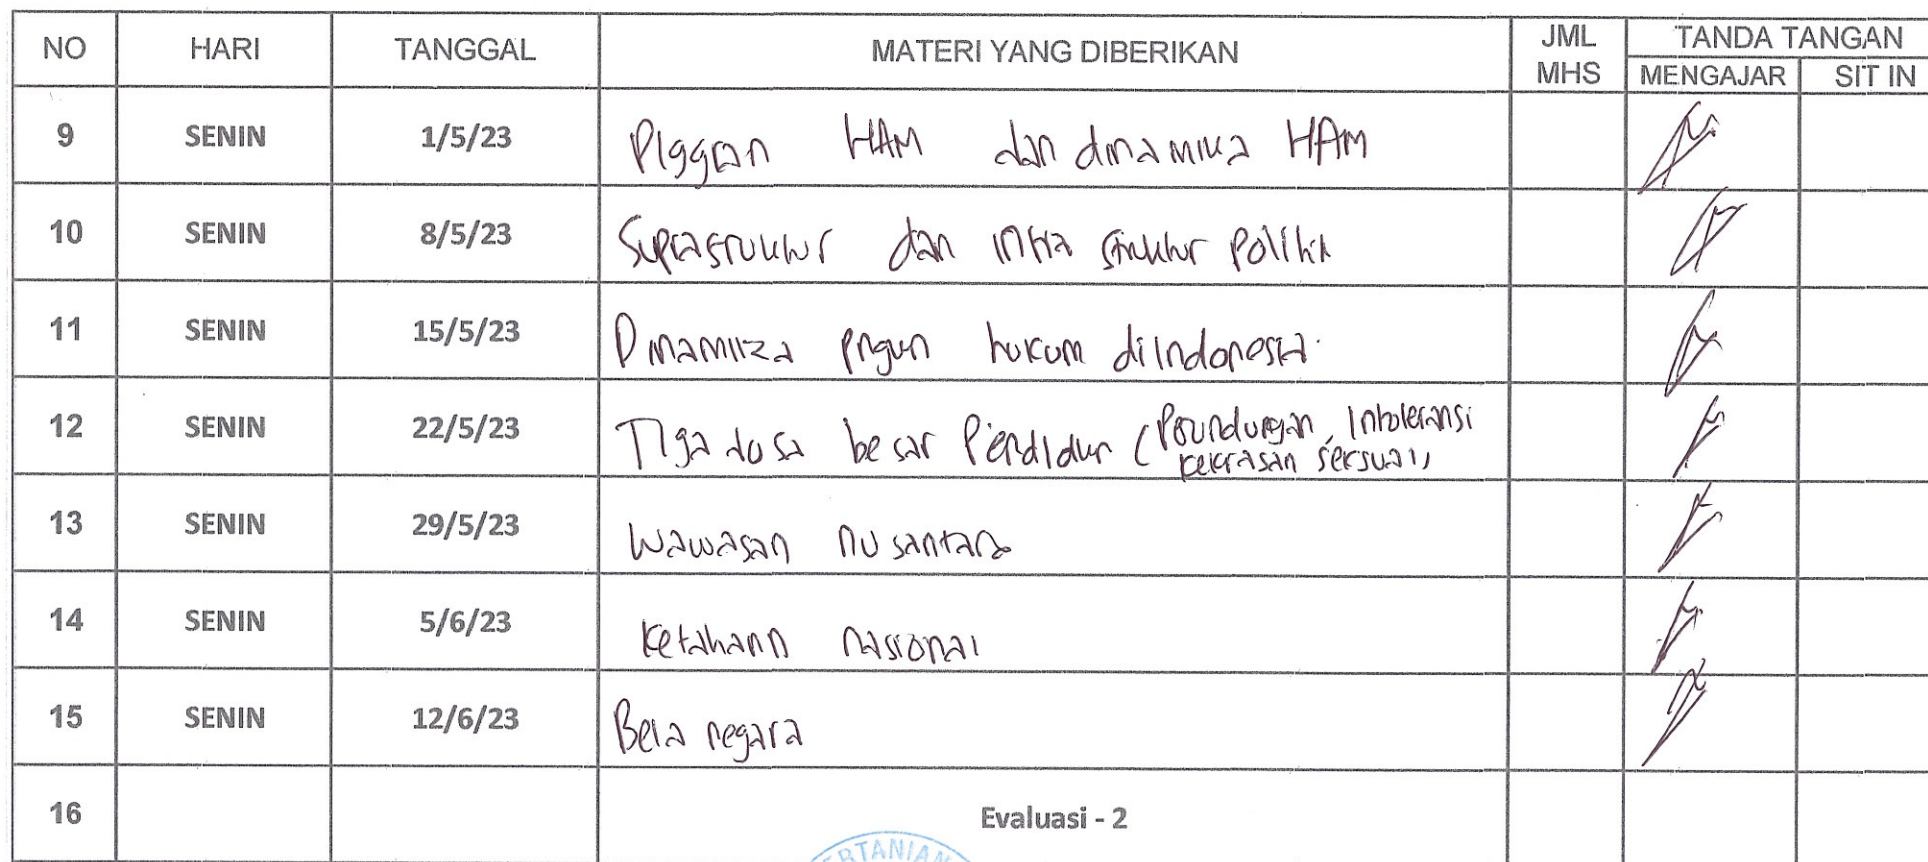 NO HARI TANGGAL MATERI YANG DIBERIKAN JML MHS TANDA TANGAN
MENGAJAR SIT IN
9 SENIN 1/5/23 HAM dan dinamika HAM
10 SENIN 8/5/23 Suprastruktur dan infra struktur Politik
11 SENIN 15/5/23 Dinamika hukum diIndonesia.
12 SENIN 22/5/23 Tiga dosa besar (Perundungan, Intoleransi
kekerasan seksual)
13 SENIN 29/5/23 Wawasan nusantara
14 SENIN 5/6/23 Ketahann nasional
15 SENIN 12/6/23 Bela negara
16 Evaluasi - 2
ERTANIAN